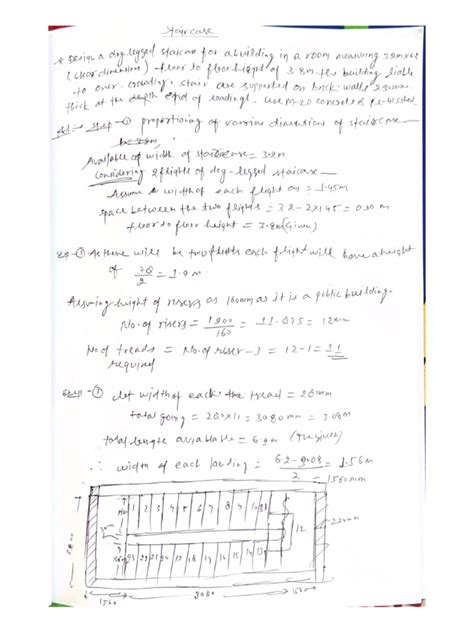 Staircase
* Design a dog-legged staircase for a building in a room measuring 3.2m x 6.2
(clear dimensions) floor to floor height of 3.8m the building liable
to over crowding. stair are supported on brick walls 230mm
thick at the end of landings. Use M-20 concrete &
proportioning of various dimensions of staircase
Available of width of staircase = 3.2m
Considering 2 flights of dog-legged staircase
Assume width of each flight as = 1.45m
Space between the two flights = 3.2-2x1.45 = 0.30 m
floor to floor height = 3.8m (Given)
As there will be two flights each flight will have a height
of 3.8/2 = 1.9m
Assuming height of risers as 160mm as it is a public building.
No. of risers = 1900/160 = 11.875 = 12
No of treads = No. of riser - 1 = 12-1 = 11
required
let width of each the tread = 280mm
total going = 280x11 = 3080mm = 3.08m
total length available = 6.2m
∴ width of each landing = 6.2-3.08/2 = 1.56m
= 1560mm
1 2 3 4 5 6 7 8 9 10 11
12
230mm
23 22 21 20 18 17 16 15 14 13
1560 3080 1560